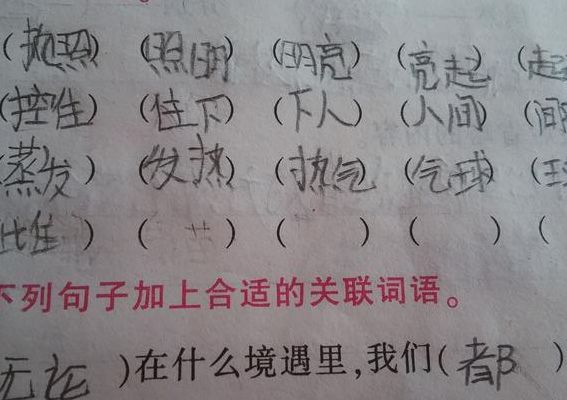 (拋照) (照明) (明亮) (亮起) (起
(控住) (住下) (下人) (人间) (间
(蒸发) (发热) (热气) (气球) (球
) ( ) ( ) ( ) (
下列句子加上合适的关联词语。
无论 )在什么境遇里,我们( 都 )